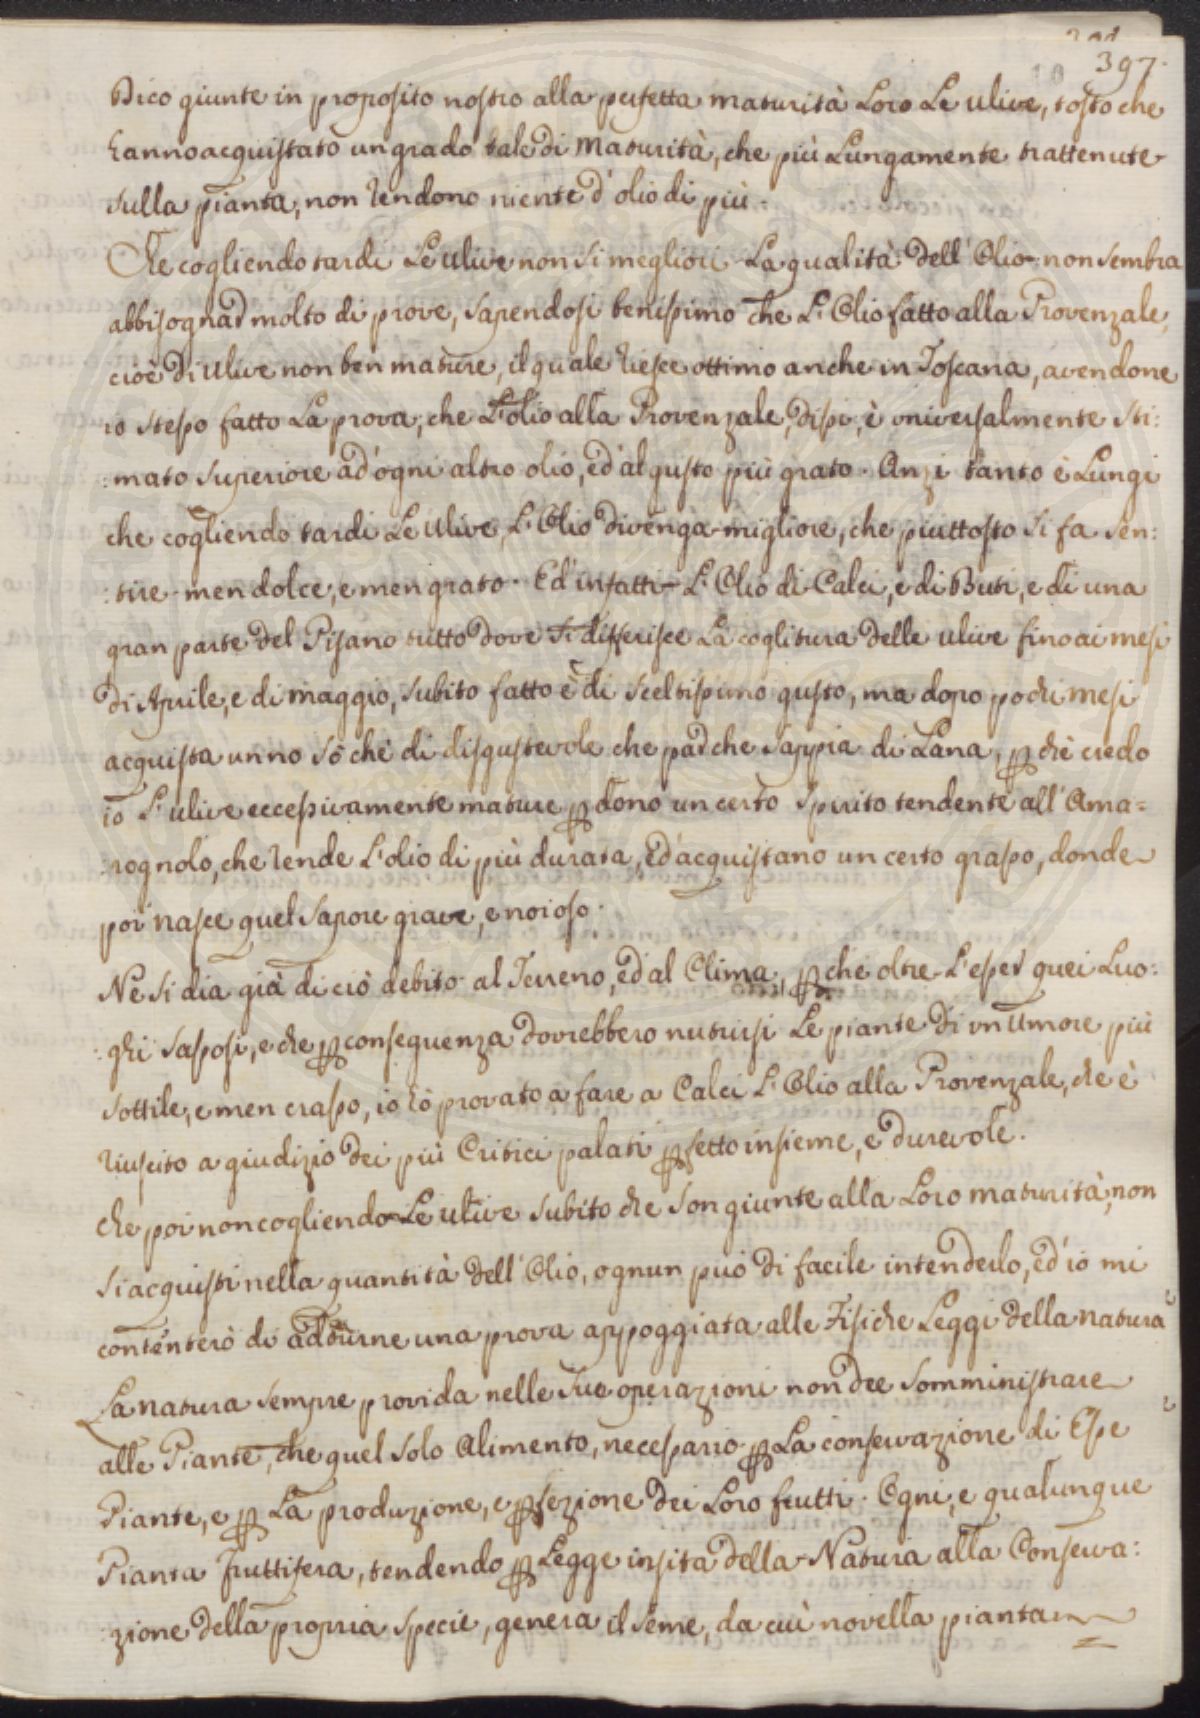 397.
Dico giunte in proposito nostro alla perfetta maturità Loro Le ulive, tosto che
hanno acquistato un grado tale di Maturità, che più Lungamente trattenute
sulla pianta, non rendono niente d'olio di più.
Che cogliendo tardi Le ulive non si megliori La qualità dell'Olio non sembra
abbisognar molto di prove, sapendosi benissimo che L'Olio fatto alla Provenzale,
cioè di ulive non ben mature, il quale riesce ottimo anche in Toscana, avendone
io stesso fatto La prova, che L'olio alla Provenzale, dissi, è universalmente sti:
:mato superiore ad ogni altro olio, ed al gusto più grato. Anzi tanto è Lungi
che cogliendo tardi Le ulive L'Olio divenga migliore, che piuttosto si fa sen:
:tire men dolce, e men grato. Ed infatti L'Olio di Calci, e di Buti, e di una
gran parte del Pisano tutto dove si differisce La coglitura delle ulive fino ai mesi
di Aprile, e di maggio, subito fatto è di sceltissimo gusto, ma dopo pochi mesi
acquista un no sò chè di disgustevole che par che sappia di Lana, pchè credo
io L'ulive eccessivamente mature pdono un certo spirito tendente all'Ama=
:rognolo, che rende L'olio di più durata, ed acquistano un certo grasso, donde
poi nasce quel sapore grave, e noioso.
Ne si dia già di ciò debito al Terreno, ed al Clima, pchè oltre L'esser quei Luo:
:ghi sassosi, e che p conseguenza dovrebbero nutrirsi Le piante di un Umore più
sottile, e men crasso, io hò provato a fare a Calci L'Olio alla Provenzale, che è
riuscito a giudizio dei più Critici palati pfetto insieme, e durevole.
che poi non cogliendo Le ulive subito che son giunte alla Loro maturità, non
si acquisti nella quantità dell'Olio, ognun può di facile intenderlo, ed io mi
contenterò di addurne una prova appoggiata alle Fisiche Leggi della natura
La natura sempre provida nelle sue operazioni non dee somministrare
alle Piante, che quel solo Alimento, necessario p La conservazione di Esse
Piante, e p La produzione, e pfezione dei Loro frutti. Ogni, e qualunque
Pianta fruttifera, tendendo p Legge insita della Natura alla Conserva:
:zione della propria specie, genera il seme, da cui novella pianta